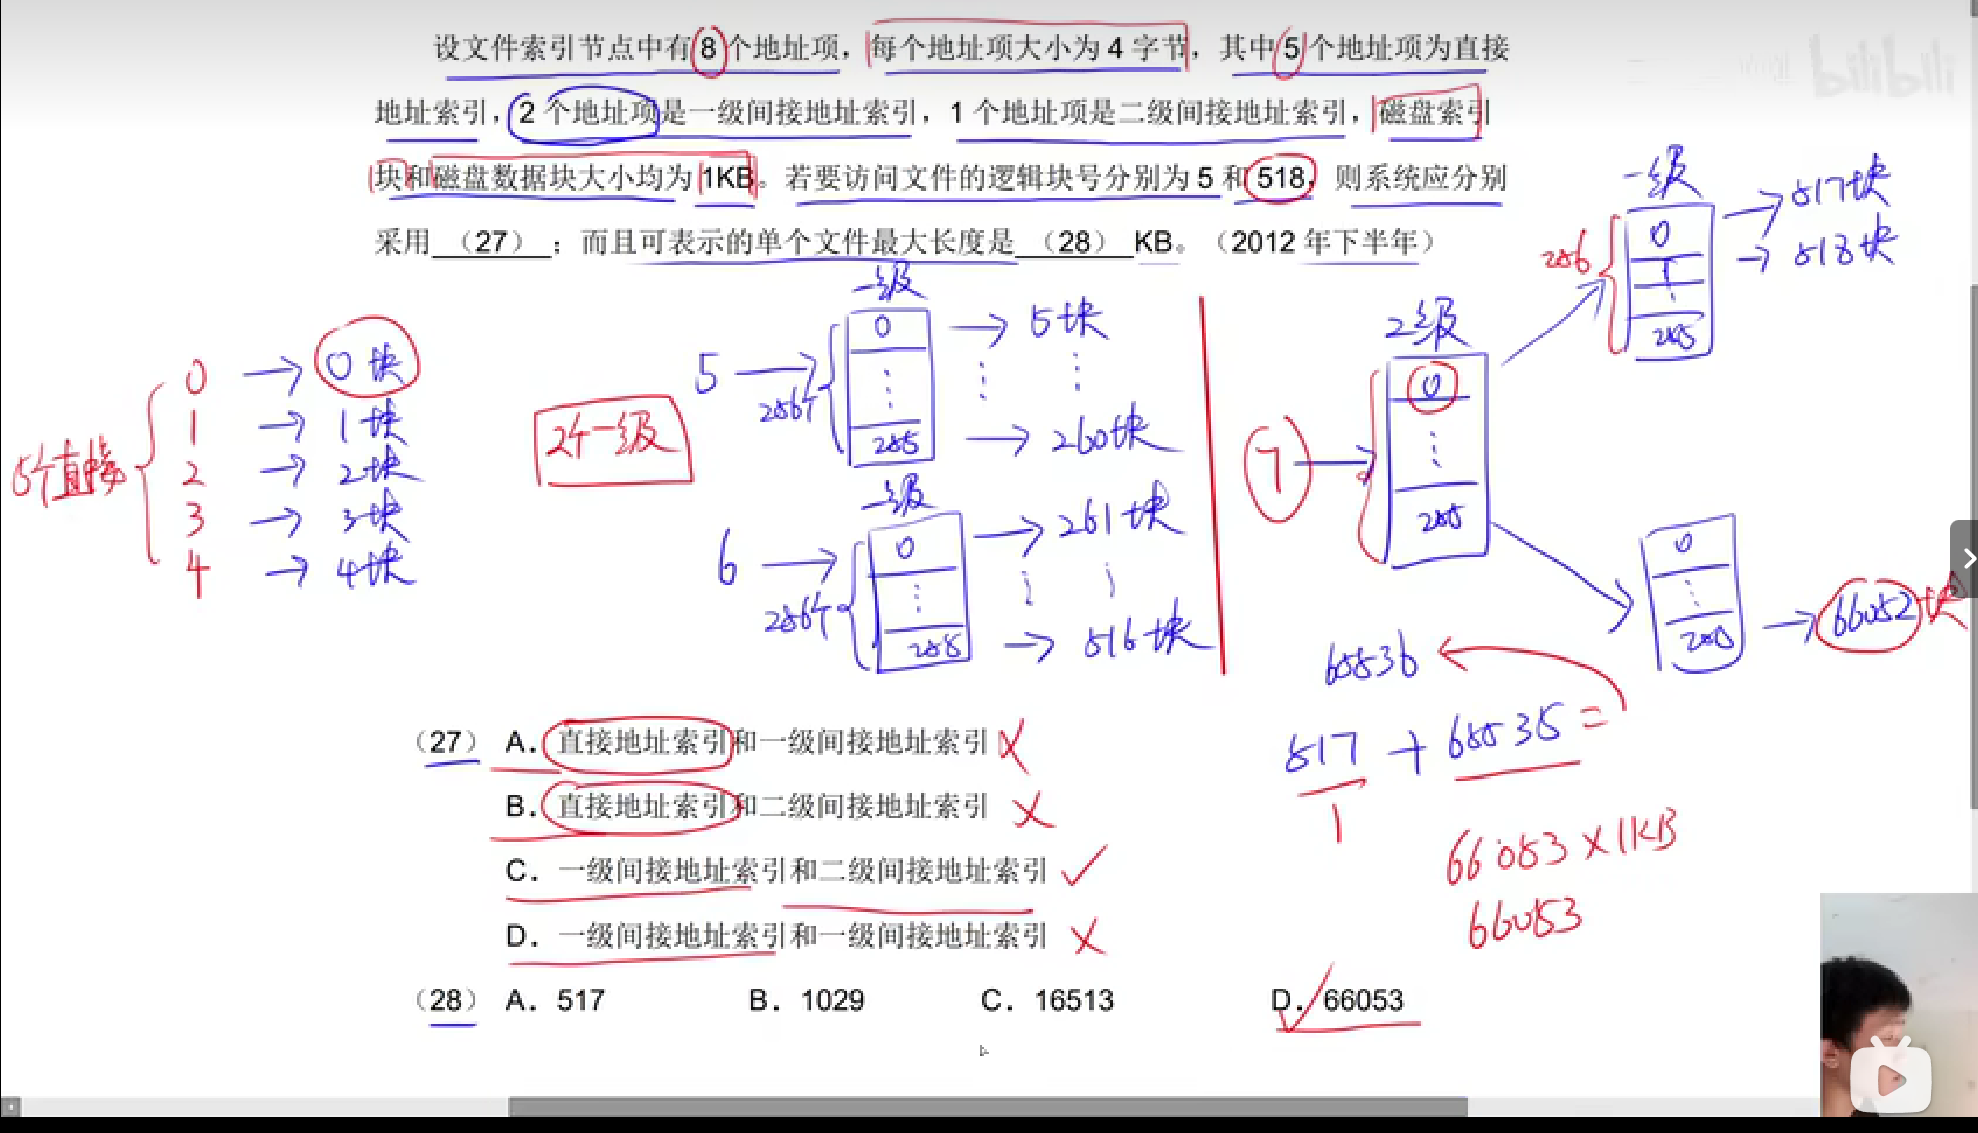 bilibili
设文件索引节点中有8个地址项，每个地址项大小为4字节，其中5个地址项为直接
地址索引，2个地址项是一级间接地址索引，1个地址项是二级间接地址索引，磁盘索引
块和磁盘数据块大小均为1KB。若要访问文件的逻辑块号分别为5和518，则系统应分别
采用 （27） ；而且可表示的单个文件最大长度是 （28） KB。（2012年下半年）
5个直接
0 → 0块
1 → 1块
2 → 2块
3 → 3块
4 → 4块
2个一级
一级
5 → 256个 0 → 5块
⋮ ⋮ ⋮
255 → 260块
一级
6 → 256个 0 → 261块
⋮ ⋮ ⋮
255 → 516块
7 → 2级
0
⋮
255
一级
256 0 → 517块
1 → 518块
⋮
255
0
⋮
255 → 66052块
65536
517 + 65535 =
1
66053×1KB
66053
（27） A．直接地址索引和一级间接地址索引 ×
B．直接地址索引和二级间接地址索引 ×
C．一级间接地址索引和二级间接地址索引 ✓
D．一级间接地址索引和一级间接地址索引 ×
（28） A．517 B．1029 C．16513 D．66053